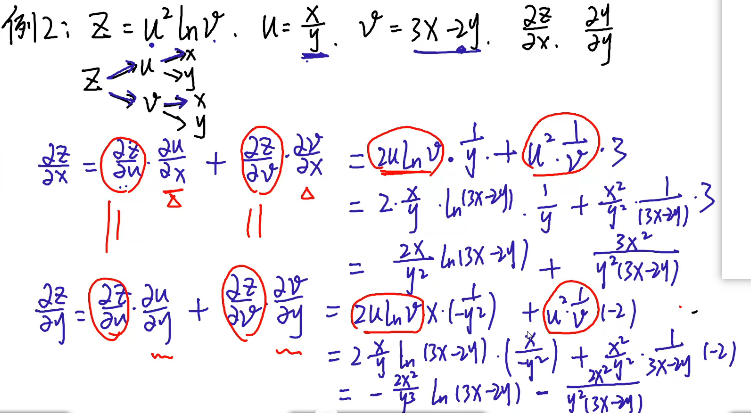 例2: Z = u² ln v. u = x/y. v = 3x-2y. ∂z/∂x. ∂y/∂y
Z → u → x
→ y
→ v → x
→ y
∂z/∂x = ∂z/∂u · ∂u/∂x + ∂z/∂v · ∂v/∂x = 2u ln v · 1/y + u² · 1/v · 3
= 2 · x/y · ln(3x-2y) · 1/y + x²/y² · 1/(3x-2y) · 3
= 2x/y² ln(3x-2y) + 3x²/y²(3x-2y)
∂z/∂y = ∂z/∂u · ∂u/∂y + ∂z/∂v · ∂v/∂y = 2u ln v x · (-1/y²) + u² · 1/v (-2)
= 2 x/y ln(3x-2y) · (x/-y²) + x²/y² · 1/3x-2y (-2)
= - 2x²/y³ ln(3x-2y) - 2x²/y²(3x-2y)